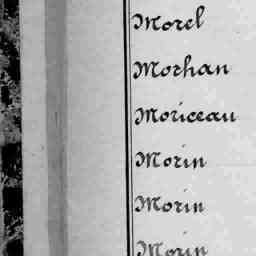 Morel
Morhan
Moriceau
Morin
Morin
Morin